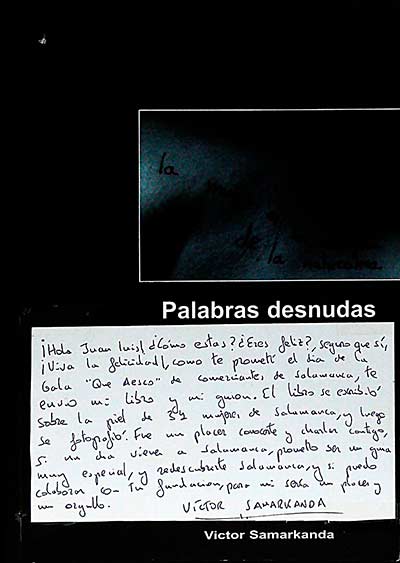 la
de la
Palabras desnudas
¡Hola Juan Luis! ¿Cómo estas? ¿Eres feliz?, seguro que sí,
¡Viva la felicidad!, como te prometí el día de la
Gala "Que Aesco" de comerciantes de Salamanca, te
envio mi libro y mi guion. El libro se escribió
sobre la piel de mujeres de Salamanca, y luego
se fotografió. Fue un placer conocerte y charlar contigo,
si un día vienes a Salamanca, prometo ser un guía
muy especial, y redescubrirte Salamanca, y si puedo
colaborar con tu fundacion, para mi sería un placer y
un orgullo. VÍCTOR SAMARKANDA
Victor Samarkanda